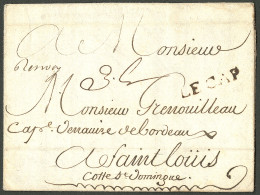 A Monsieur
LE CAP
Monsieur Grenouilleau
Cape. Navire de Bordeau
A Saint Loüis
Cotte St Domingue